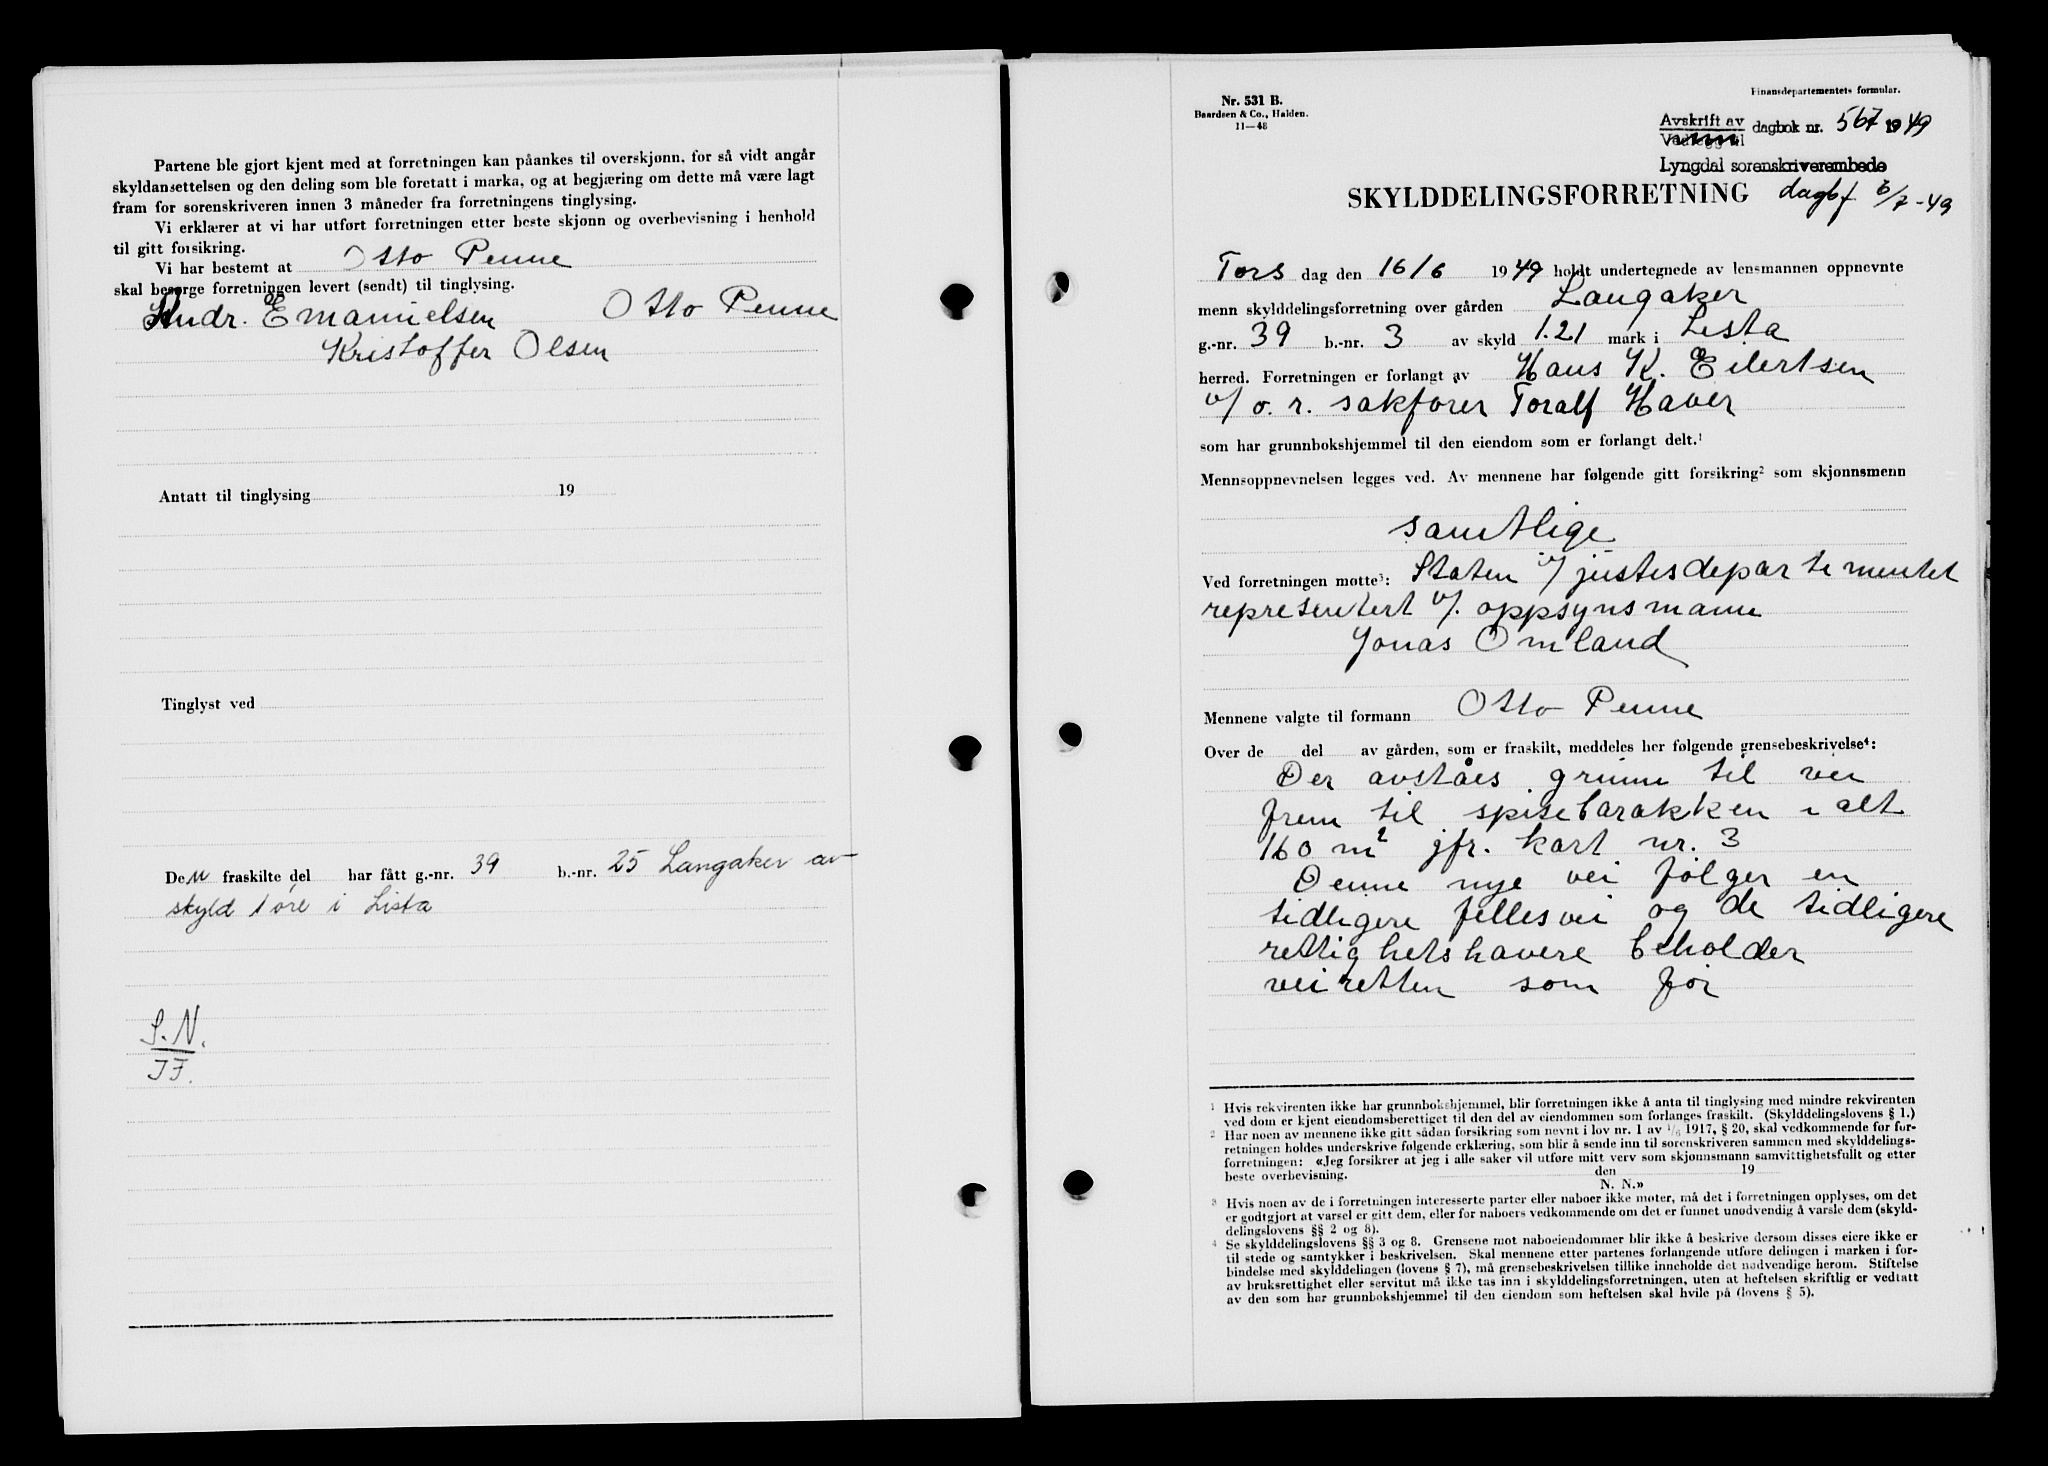 Partene ble gjort kjent med at forretningen kan påankes til overskjønn, for så vidt angår
skyldansettelsen og den deling som ble foretatt i marka, og at begjæring om dette må være lagt
fram for sorenskriveren innen 3 måneder fra forretningens tinglysing.
Vi erklærer at vi har utført forretningen etter beste skjønn og overbevisning i henhold
til gitt forsikring.
Vi har bestemt at Otto Penne
skal besørge forretningen levert (sendt) til tinglysing.
Andr. Emanuelsen Otto Penne
Kristoffer Olsen
Antatt til tinglysing 19
Tinglyst ved
Den fraskilte del har fått g.-nr. 39 b.-nr. 25 Langaker av
skyld 1 øre i Lista
S.N.
JF.
Nr. 531 B.
Baardsen & Co., Halden.
11—48
Finansdepartementets formular.
Avskrift av
Vedlegg til
dagbok nr. 567 1949
Lyngdal sorenskriverembede
SKYLDDELINGSFORRETNING dagbf. 6/7-49
Tors dag den 16/6 1949 holdt undertegnede av lensmannen oppnevnte
menn skylddelingsforretning over gården Langaker
g.-nr. 39 b.-nr. 3 av skyld 1.21 mark i Lista
herred. Forretningen er forlangt av Hans K. Eilertsen
v/ o. r. sakfører Toralf Haver
som har grunnbokshjemmel til den eiendom som er forlangt delt.¹
Mennsoppnevnelsen legges ved. Av mennene har følgende gitt forsikring² som skjønnsmenn
samtlige
Ved forretningen møtte³: Staten v/ justisdepartementet
representert v/. oppsynsmann
Jonas Omland
Mennene valgte til formann Otto Penne
Over de del av gården, som er fraskilt, meddeles her følgende grensebeskrivelse⁴:
Der avståes grunn til vei
frem til spisebarakken i alt
160 m² jfr. kart nr. 3
Denne nye vei følger en
tidligere fellesvei og de tidligere
rettighetshavere beholder
veiretten som før
¹ Hvis rekvirenten ikke har grunnbokshjemmel, blir forretningen ikke å anta til tinglysing med mindre rekvirenten
ved dom er kjent eiendomsberettiget til den del av eiendommen som forlanges fraskilt. (Skylddelingslovens § 1.)
² Har noen av mennene ikke gitt sådan forsikring som nevnt i lov nr. 1 av 1/6 1917, § 20, skal vedkommende før for-
retningen holdes underskrive følgende erklæring, som blir å sende inn til sorenskriveren sammen med skylddelings-
forretningen: «Jeg forsikrer at jeg i alle saker vil utføre mitt verv som skjønnsmann samvittighetsfullt og etter
beste overbevisning. den 19
N. N.»
³ Hvis noen av de i forretningen interesserte parter eller naboer ikke møter, må det i forretningen opplyses, om det
er godtgjort at varsel er gitt dem, eller for naboers vedkommende om det er funnet unødvendig å varsle dem (skyld-
delingslovens §§ 2 og 8).
⁴ Se skylddelingslovens §§ 3 og 8. Grensene mot naboeiendommer blir ikke å beskrive dersom disses eiere ikke er
til stede og samtykker i beskrivelsen. Skal mennene etter partenes forlangende utføre delingen i marken i for-
bindelse med skylddelingen (lovens § 7), må grensebeskrivelsen tillike inneholde det nødvendige herom. Stiftelse
av bruksrettighet eller servitut må ikke tas inn i skylddelingsforretningen, uten at heftelsen skriftlig er vedtatt
av den som har grunnbokshjemmel til den eiendom som heftelsen skal hvile på (lovens § 5).